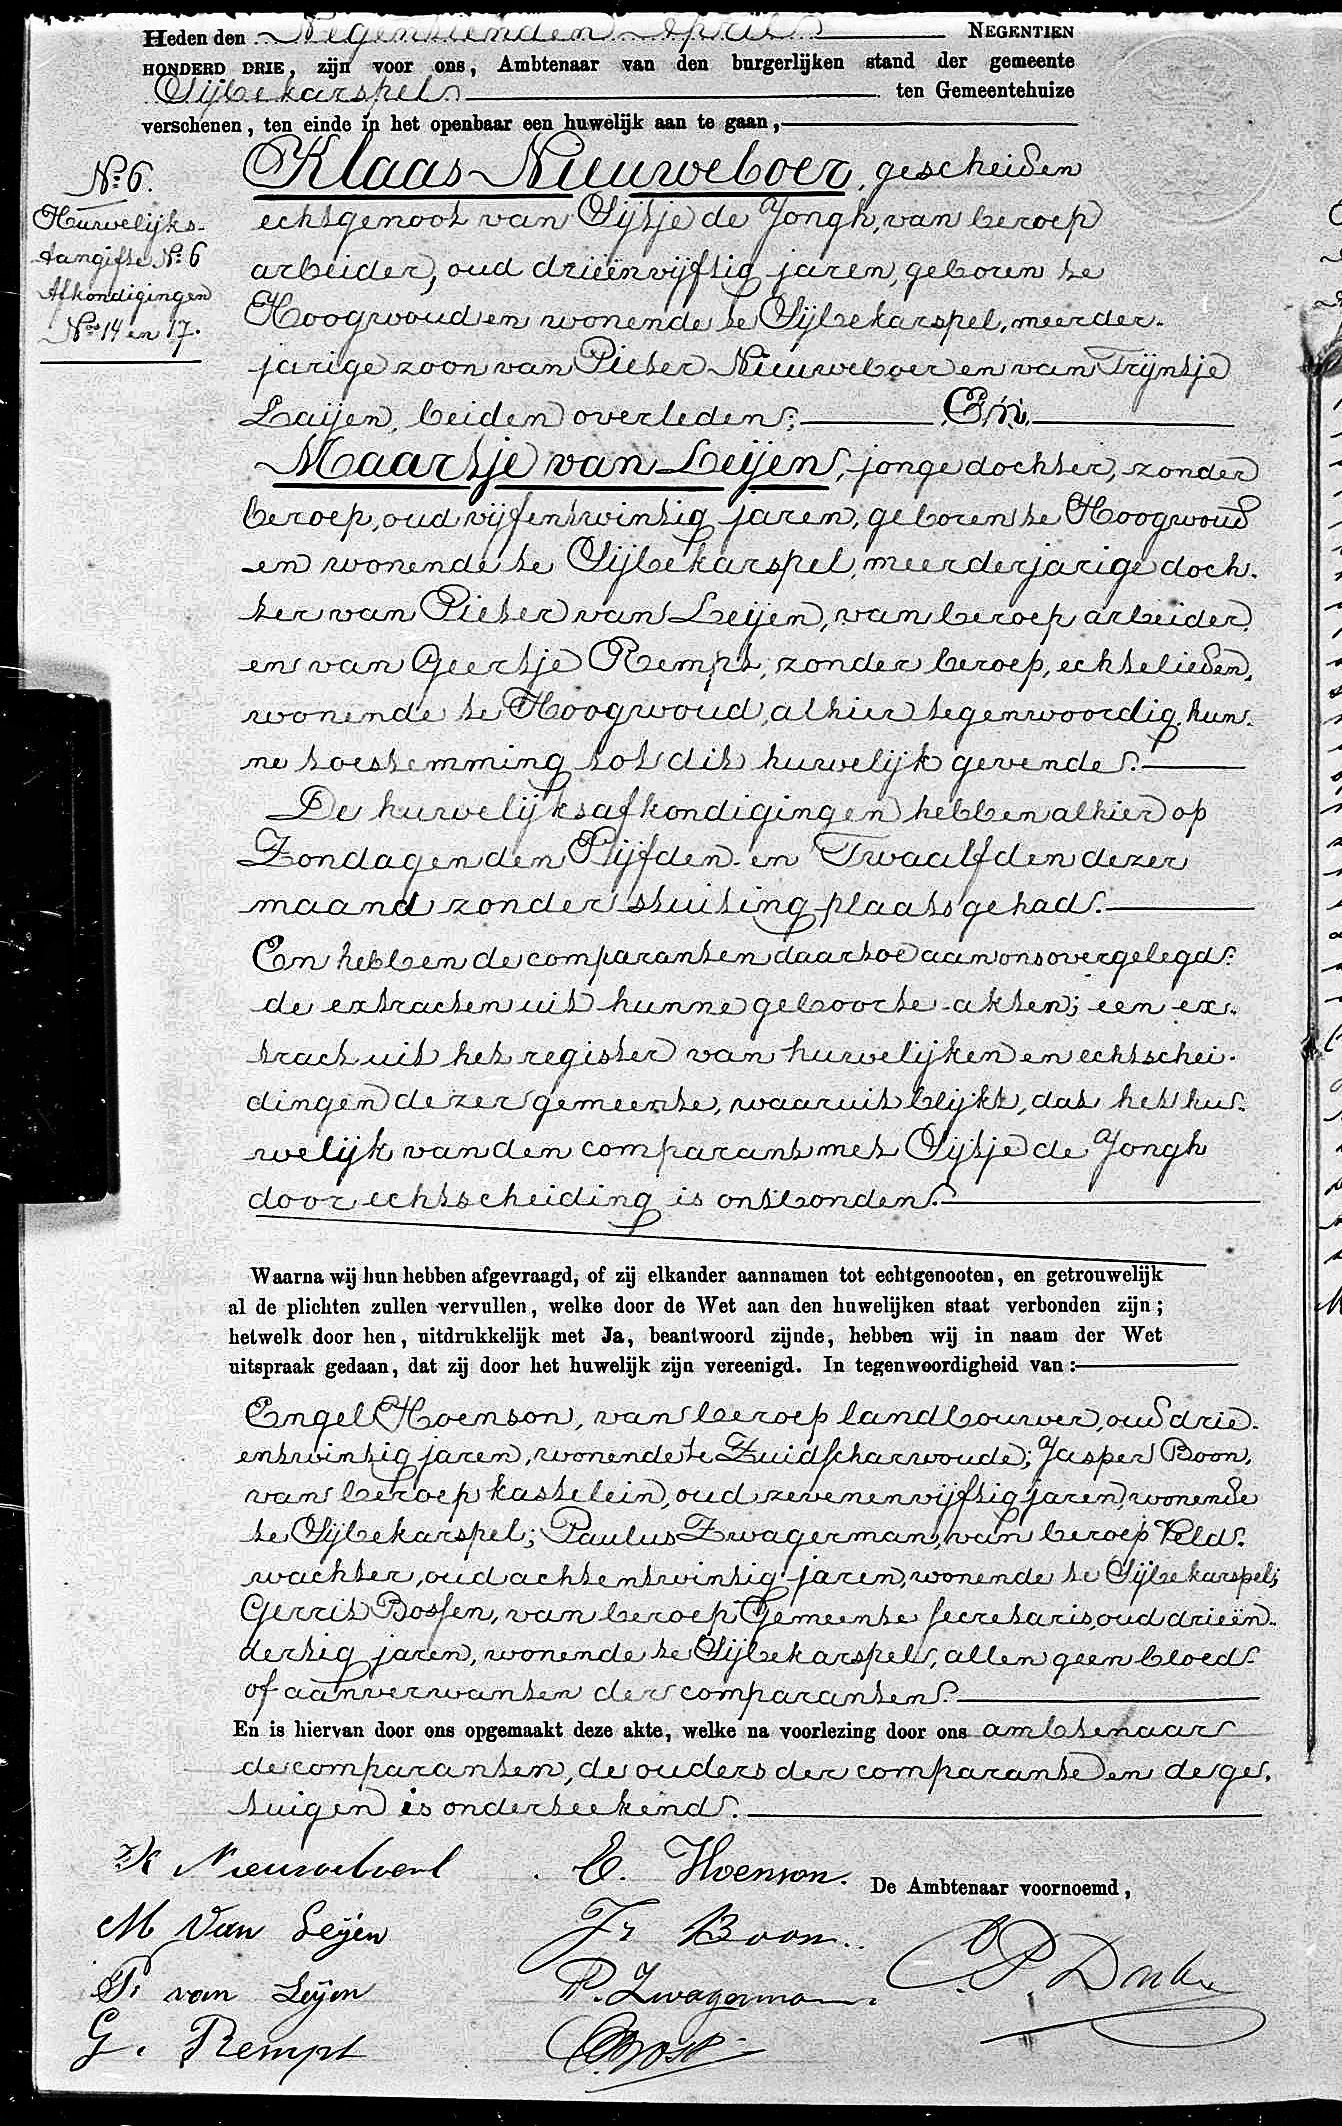 Heden den Negentienden April NEGENTIEN
HONDERD DRIE, zijn voor ons, Ambtenaar van den burgerlijken stand der gemeente
Sijbekarspel ten Gemeentehuize
verschenen, ten einde in het openbaar een huwelijk aan te gaan,
No. 6.
Huwelijks-
Aangifte No. 6
Afkondigingen
Nos 14 en 17.
Klaas Nieuweboer, gescheiden
echtgenoot van Sijtje de Jongh, van beroep
arbeider, oud drieënvijftig jaren, geboren te
Hoogwoud en wonende te Sijbekarspel, meerder-
jarige zoon van Pieter Nieuweboer en van Trijntje
Laijen, beiden overleden; En,
Maartje van Leijen, jonge dochter, zonder
beroep, oud vijfentwintig jaren, geboren te Hoogwoud
en wonende te Sijbekarspel, meerderjarige doch-
ter van Pieter van Leijen, van beroep arbeider,
en van Geertje Rempt, zonder beroep, echtelieden,
wonende te Hoogwoud, alhier tegenwoordig, hun-
ne toestemming tot dit huwelijk gevende.
De huwelijksafkondigingen hebben alhier op
Zondagen den Vijfden en Twaalfden dezer
maand zonder stuiting plaats gehad.
En hebben de comparanten daartoe aan ons overgelegd:
de extracten uit hunne geboorte-akten; een ex-
tract uit het register van huwelijken en echtschei-
dingen dezer gemeente, waaruit blijkt, dat het hu-
welijk van den comparant met Sijtje de Jongh
door echtscheiding is ontbonden.
Waarna wij hun hebben afgevraagd, of zij elkander aannamen tot echtgenooten, en getrouwelijk
al de plichten zullen vervullen, welke door de Wet aan den huwelijken staat verbonden zijn;
hetwelk door hen, uitdrukkelijk met Ja, beantwoord zijnde, hebben wij in naam der Wet
uitspraak gedaan, dat zij door het huwelijk zijn vereenigd. In tegenwoordigheid van:
Engel Hoenson, van beroep landbouwer, oud drie-
entwintig jaren, wonende te Zuidscharwoude; Jasper Boon,
van beroep kastelein, oud zevenenvijftig jaren, wonende
te Sijbekarspel; Paulus Zwagerman, van beroep Veld-
wachter, oud achtentwintig jaren, wonende te Sijbekarspel;
Gerrit Bossen, van beroep Gemeente secretaris, oud drieën-
dertig jaren, wonende te Sijbekarspel, allen geen bloed-
of aanverwanten der comparanten.
En is hiervan door ons opgemaakt deze akte, welke na voorlezing door ons ambtenaar
de comparanten, de ouders der comparante en de ge-
tuigen is onderteekend.
K Nieuweboer
E. Hoenson.
De Ambtenaar voornoemd,
M van Leijen
Js Boon.
P. van Leijen
P. Zwagerman.
G. Rempt